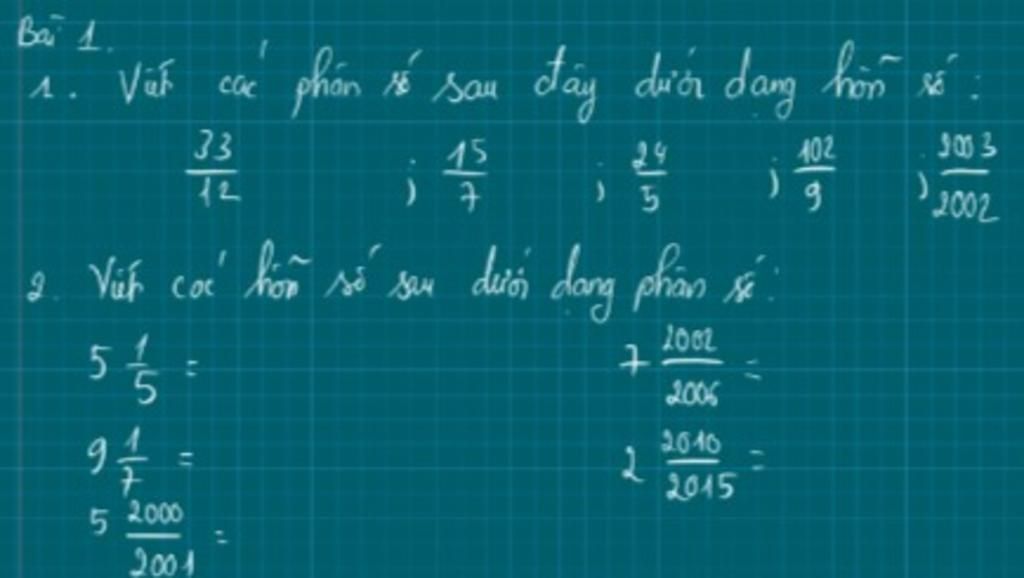 Bài 1.
1. Viết các phân số sau đây dưới dạng hỗn số:
33/12 ; 15/7 ; 24/5 ; 102/9 ; 2003/2002
2. Viết các hỗn số sau dưới dạng phân số:
5 1/5 = 7 2002/2006 =
9 1/7 = 2 2010/2015 =
5 2000/2001 =